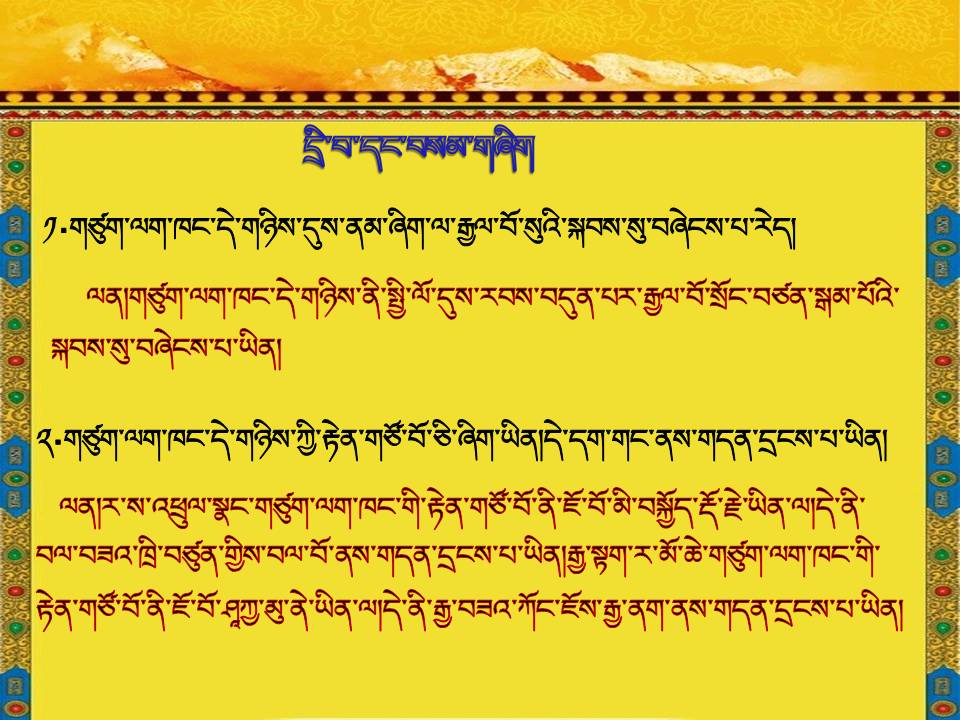 དྲི་བ་དང་བསམ་གཞིག
༡.གཙུག་ལག་ཁང་དེ་གཉིས་དུས་ནམ་ཞིག་ལ་རྒྱལ་བོ་སུའི་སྐབས་སུ་བཞེངས་པ་རེད།
ལན།གཙུག་ལག་ཁང་དེ་གཉིས་ནི་སྤྱི་ལོ་དུས་རབས་བདུན་པར་རྒྱལ་བོ་སྲོང་བཙན་སྒམ་པོའི་
སྐབས་སུ་བཞེངས་པ་ཡིན།
༢.གཙུག་ལག་ཁང་དེ་གཉིས་ཀྱི་རྟེན་གཙོ་བོ་ཅི་ཞིག་ཡིན།དེ་དག་གང་ནས་གདན་དྲངས་པ་ཡིན།
ལན།ར་ས་འཕྲུལ་སྣང་གཙུག་ལག་ཁང་གི་རྟེན་གཙོ་བོ་ནི་ཇོ་བོ་མི་བསྐྱོད་རྡོ་རྗེ་ཡིན་ལ།དེ་ནི་
བལ་བཟའ་ཁྲི་བཙུན་གྱིས་བལ་བོ་ནས་གདན་དྲངས་པ་ཡིན།རྒྱ་སྟག་ར་མོ་ཆེ་གཙུག་ལག་ཁང་གི་
རྟེན་གཙོ་བོ་ནི་ཇོ་བོ་ཤཱཀྱ་མུ་ནེ་ཡིན་ལ།དེ་ནི་རྒྱ་བཟའ་ཀོང་ཇོས་རྒྱ་ནག་ནས་གདན་དྲངས་པ་ཡིན།